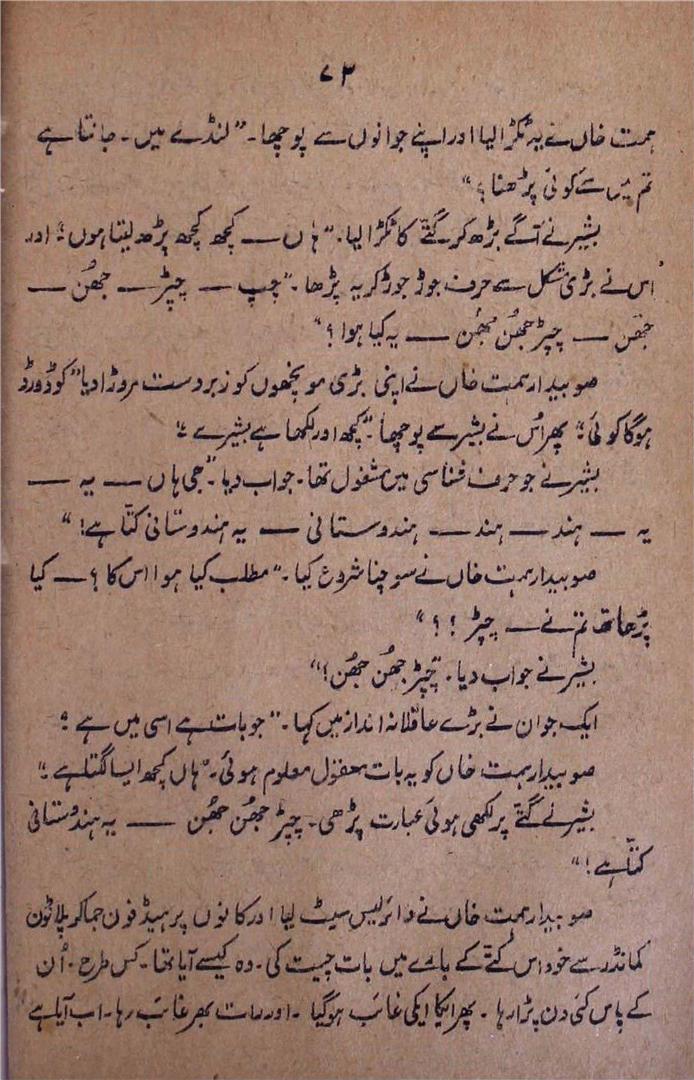 ۷۳
ہمت خاں نے یہ ٹکڑا لیا اور اپنے جوانوں سے پوچھا۔ ”لنڈے میں۔ جانتا ہے
تم میں سے کوئی پڑھنا؟“
بشیر نے آگے بڑھ کر گتے کا ٹکڑا لیا۔ ”ہاں — کچھ کچھ پڑھ لیتا ہوں؛“ اور
اُس نے بڑی مشکل سے حرف جوڑ جوڑ کر یہ پڑھا۔ ”چپ — چپڑ — جھُن —
جھُن — چپڑ جھُن جھُن — یہ کیا ہوا؟“
صوبیدار ہمت خاں نے اپنی بڑی مونچھوں کو زبردست مروڑا دیا ”کوڈ ورڈ
ہوگا کوئی؛“ پھر اُس نے بشیر سے پوچھا ”کچھ اور لکھا ہے بشیرے؛“
بشیر نے جو حرف شناسی میں مشغول تھا۔ جواب دیا ”جی ہاں — یہ —
یہ — ہند — ہند — ہندوستانی — یہ ہندوستانی کتّا ہے!“
صوبیدار ہمت خاں نے سوچنا شروع کیا۔ ”مطلب کیا ہوا اس کا؟ — کیا
پڑھا تھا تم نے — چپڑ!؟“
بشیر نے جواب دیا۔ ”چپڑ جھُن جھُن!“
ایک جوان نے بڑے عاقلانہ انداز میں کہا۔ ”جو بات ہے اسی میں ہے؛“
صوبیدار ہمت خاں کو یہ بات معقول معلوم ہوئی۔ ”ہاں کچھ ایسا لگتا ہے؛“
بشیر نے گتے پر لکھی ہوئی عبارت پڑھی۔ چپڑ جھُن جھُن — یہ ہندوستانی
کتّا ہے!“
صوبیدار ہمت خاں نے وائرلیس سیٹ لیا اور کانوں پر ہیڈ فون جما کر پلاٹون
کمانڈر سے خود اس کُتے کے بارے میں بات چیت کی۔ وہ کیسے آیا تھا۔ کس طرح۔ اُن
کے پاس کئی دن پڑا رہا۔ پھر ایکا ایکی غائب ہوگیا۔ اور رات بھر غائب رہا۔ اب آیا ہے